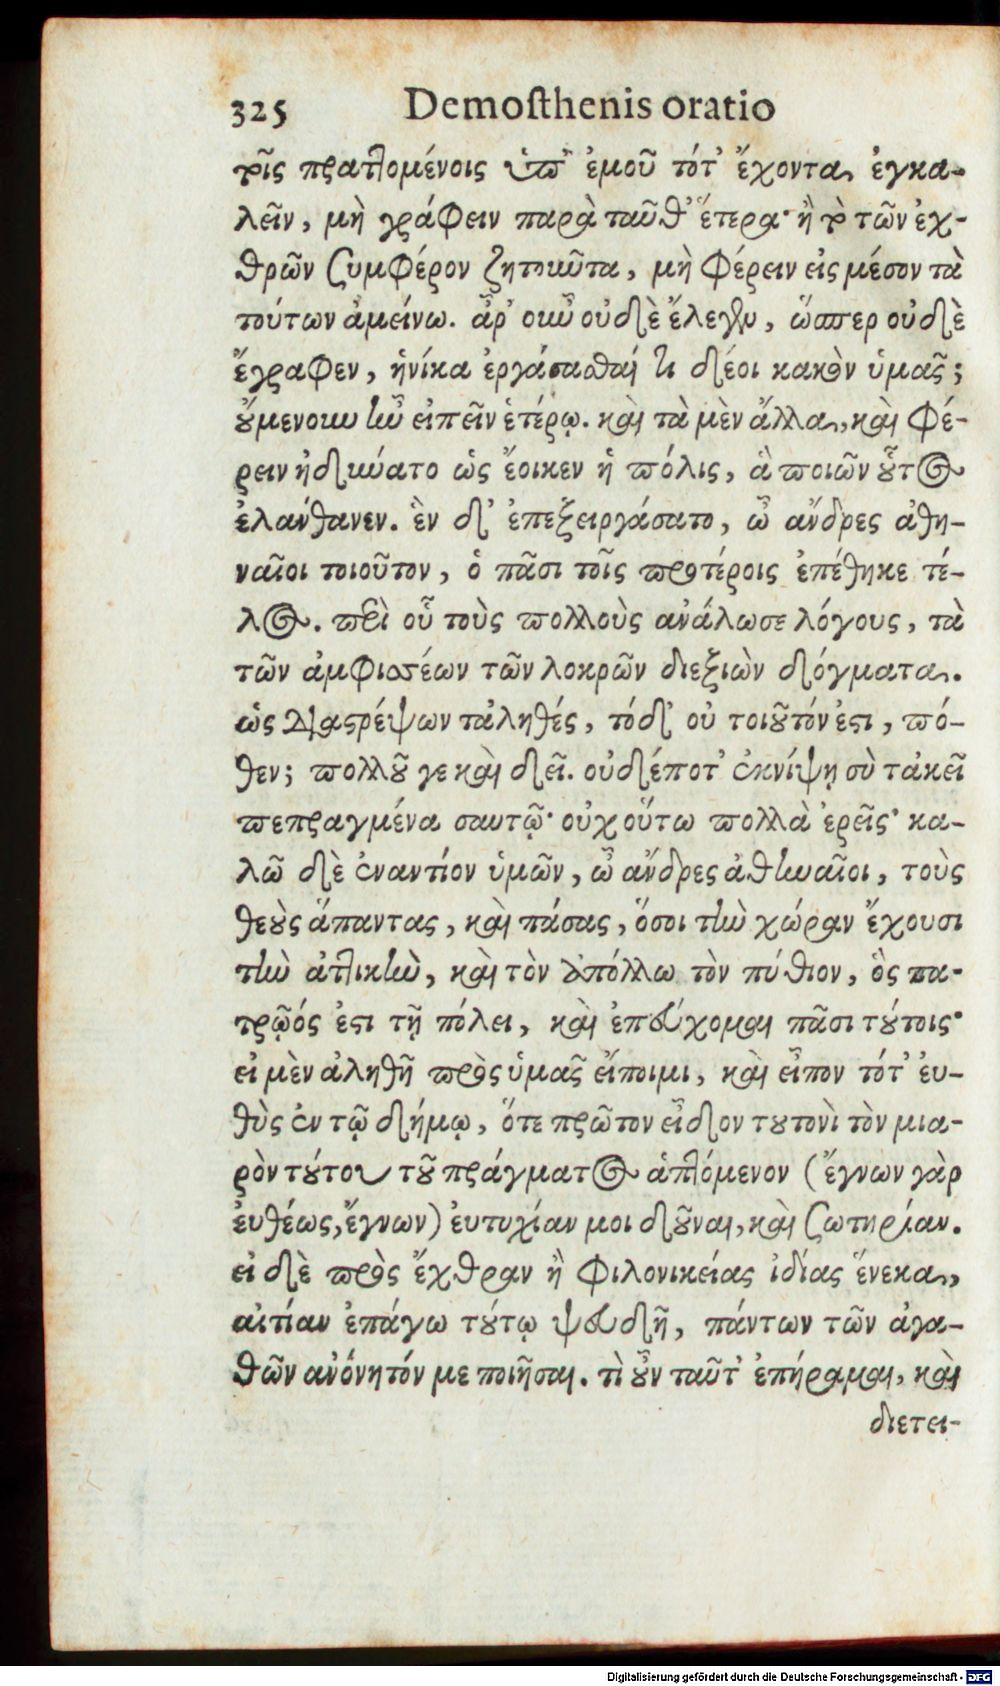 325 Demosthenis oratio
τοῖς πραττομένοις ὑπ' ἐμοῦ τότ' ἔχοντα, ἐγκα-
λεῖν, μὴ γράφειν παρὰ ταῦθ' ἕτερα· ἢ τὸ τῶν ἐχ-
θρῶν συμφέρον ζητοῦντα, μὴ φέρειν εἰς μέσον τὰ
τούτων ἀμείνω. ἆρ' οὖν οὐδὲ ἔλεγεν, ὥσπερ οὐδὲ
ἔγραφεν, ἡνίκα ἐργάσασθαί τι δέοι κακὸν ὑμᾶς;
οὐμενοῦν ἦν εἰπεῖν ἑτέρῳ. καὶ τὰ μὲν ἄλλα, καὶ φέ-
ρειν ἠδύνατο ὡς ἔοικεν ἡ πόλις, ἃ ποιῶν οὗτος
ἐλάνθανεν. ἓν δ' ἐπεξειργάσατο, ὦ ἄνδρες ἀθη-
ναῖοι τοιοῦτον, ὁ πᾶσι τοῖς προτέροις ἐπέθηκε τέ-
λος. περὶ οὗ τοὺς πολλοὺς ἀνάλωσε λόγους, τὰ
τῶν ἀμφισσέων τῶν λοκρῶν διεξιὼν δόγματα.
ὡς διαστρέψων τἀληθές, τόδ' οὐ τοιοῦτόν ἐστι, πό-
θεν; πολλοῦ γε καὶ δεῖ. οὐδέποτ' ἐκνίψῃ σὺ τἀκεῖ
πεπραγμένα σαυτῷ· οὐχ οὕτω πολλὰ ἐρεῖς· κα-
λῶ δὲ ἐναντίον ὑμῶν, ὦ ἄνδρες ἀθηναῖοι, τοὺς
θεοὺς ἅπαντας, καὶ πάσας, ὅσοι τὴν χώραν ἔχουσι
τὴν ἀττικὴν, καὶ τὸν ἀπόλλω τὸν πύθιον, ὃς πα-
τρῷός ἐστι τῇ πόλει, καὶ ἐπεύχομαι πᾶσι τούτοις·
εἰ μὲν ἀληθῆ πρὸς ὑμᾶς εἴποιμι, καὶ εἶπον τότ' ἐυ-
θὺς ἐν τῷ δήμῳ, ὅτε πρῶτον εἶδον τουτονὶ τὸν μια-
ρὸν τούτου τοῦ πράγματος ἁπτόμενον (ἔγνων γὰρ
ἐυθέως, ἔγνων) ἐυτυχίαν μοι δοῦναι, καὶ σωτηρίαν.
εἰ δὲ πρὸς ἔχθραν ἢ φιλονικείας ἰδίας ἕνεκα,
αἰτίαν ἐπάγω τούτῳ ψευδῆ, πάντων τῶν ἀγα-
θῶν ἀνόνητόν με ποιῆσαι. τὶ οὖν ταῦτ' ἐπήραμαι, καὶ
διετει-
Digitalisierung gefördert durch die Deutsche Forschungsgemeinschaft - DFG